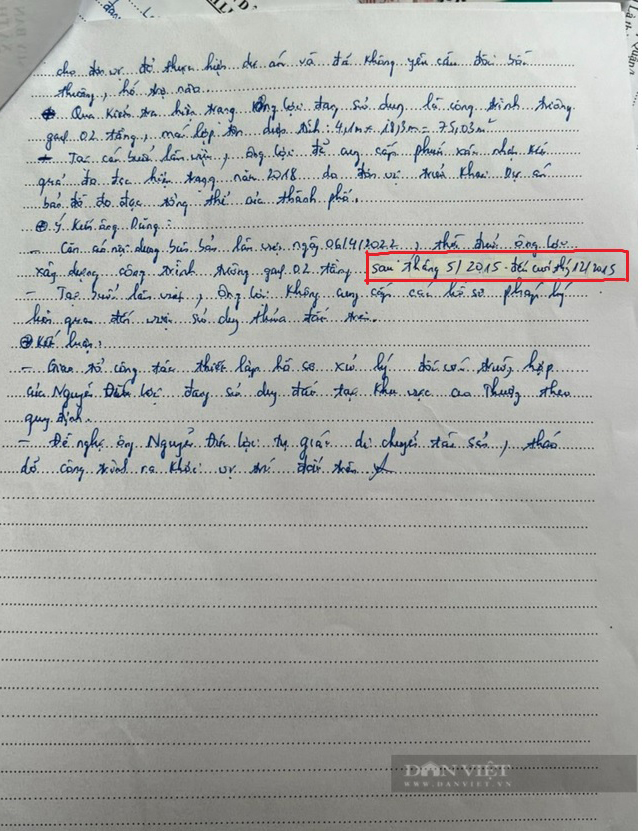 cho đơn vị để thực hiện dự án và đã không yêu cầu đòi bồi
thường, hỗ trợ nào.
⊕ Qua kiểm tra hiện trạng ông Lợi đang sử dụng là công trình trường
gạch 02 tầng, mái lợp tôn diện tích: 4,1m x 18,3m = 75,03m²
+ Tại các buổi làm việc, ông Lợi đã cung cấp phiếu xác nhận kết
quả đo đạc hiện trạng năm 2018 do đơn vị triển khai dự án
bản đồ đo đạc tổng thể của thành phố.
⊕ Ý kiến ông Dũng:
- Căn cứ nội dung biên bản làm việc ngày 06/4/2022, thời điểm ông Lợi
xây dựng công trình tường gạch 02 tầng sau tháng 5/2015 đến cuối th 12/2015
- Tại buổi làm việc, ông Lợi không cung cấp các hồ sơ pháp lý
liên quan đến việc sử dụng thửa đất trên.
⊕ Kết luận:
- Giao tổ công tác thiết lập hồ sơ xử lý đối với trường hợp
của Nguyễn Đức Lợi đang sử dụng đất tại khu vực Cao Thượng theo
quy định.
- Đề nghị ông Nguyễn Đức Lợi tự giác di chuyển tài sản, tháo
dỡ công trình ra khỏi vị trí đất trên
DÂN VIỆT
WWW.DANVIET.VN